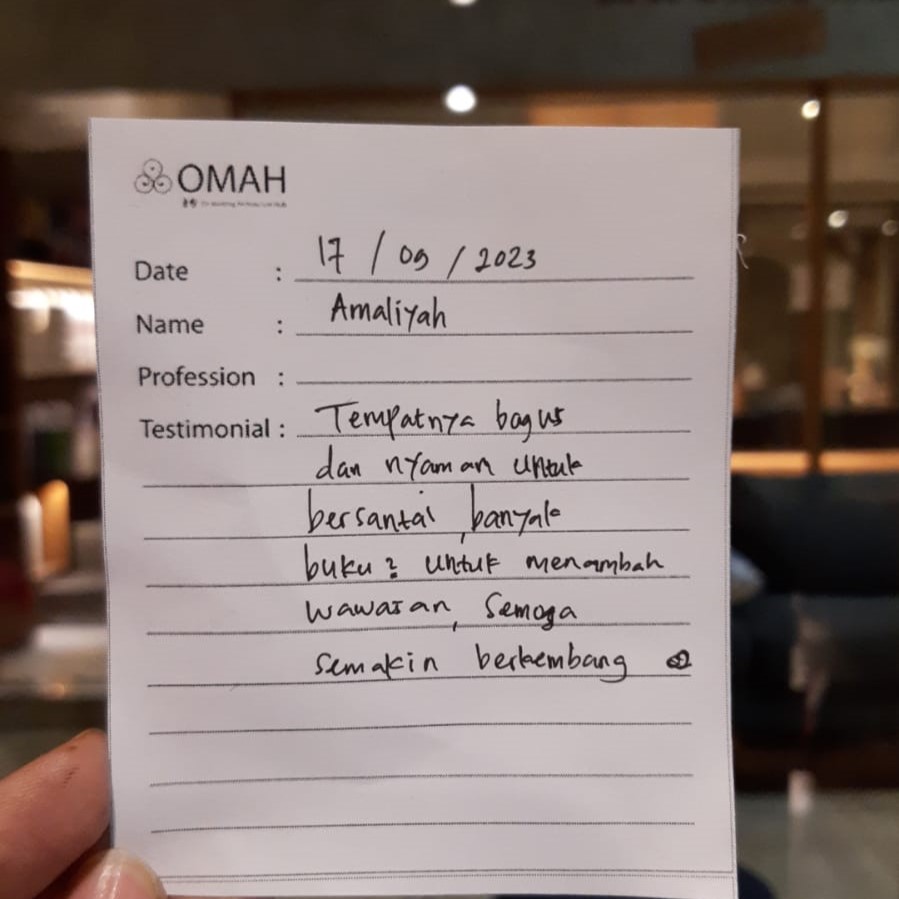 OMAH
Date : 17 / 09 / 2023
Name : Amaliyah
Profession :
Testimonial : Tempatnya bagus
dan nyaman untuk
bersantai, banyak
buku2 untuk menambah
wawasan, Semoga
semakin berkembang